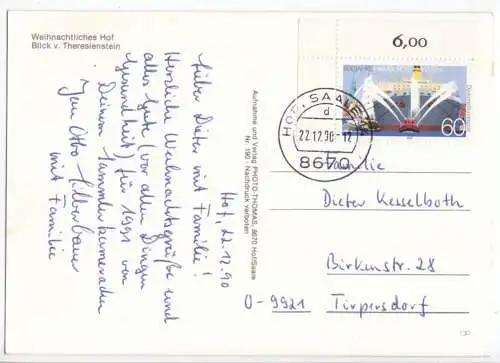 Weihnachtliches Hof
Blick v. Theresienstein
Hof, 22.12.90
Lieber Dieter mit Familie!
Herzliche Weihnachtsgrüße und
alles Gute (vor allen Dingen
Gesundheit) für 1991 von
Deinem Sammlerkameraden
Jan Otto Silberbauer
mit Familie
Aufnahme und Verlag PHOTO-THOMAS, 8670 Hof/Saale
Nr. 190 · Nachdruck verboten
6,00
800 JAHRE
60
HOF, SAALE
d
22.12.90-12
8670
Familie
Dieter Kesselboth
Birkenstr. 28
O-9921 Tirpersdorf